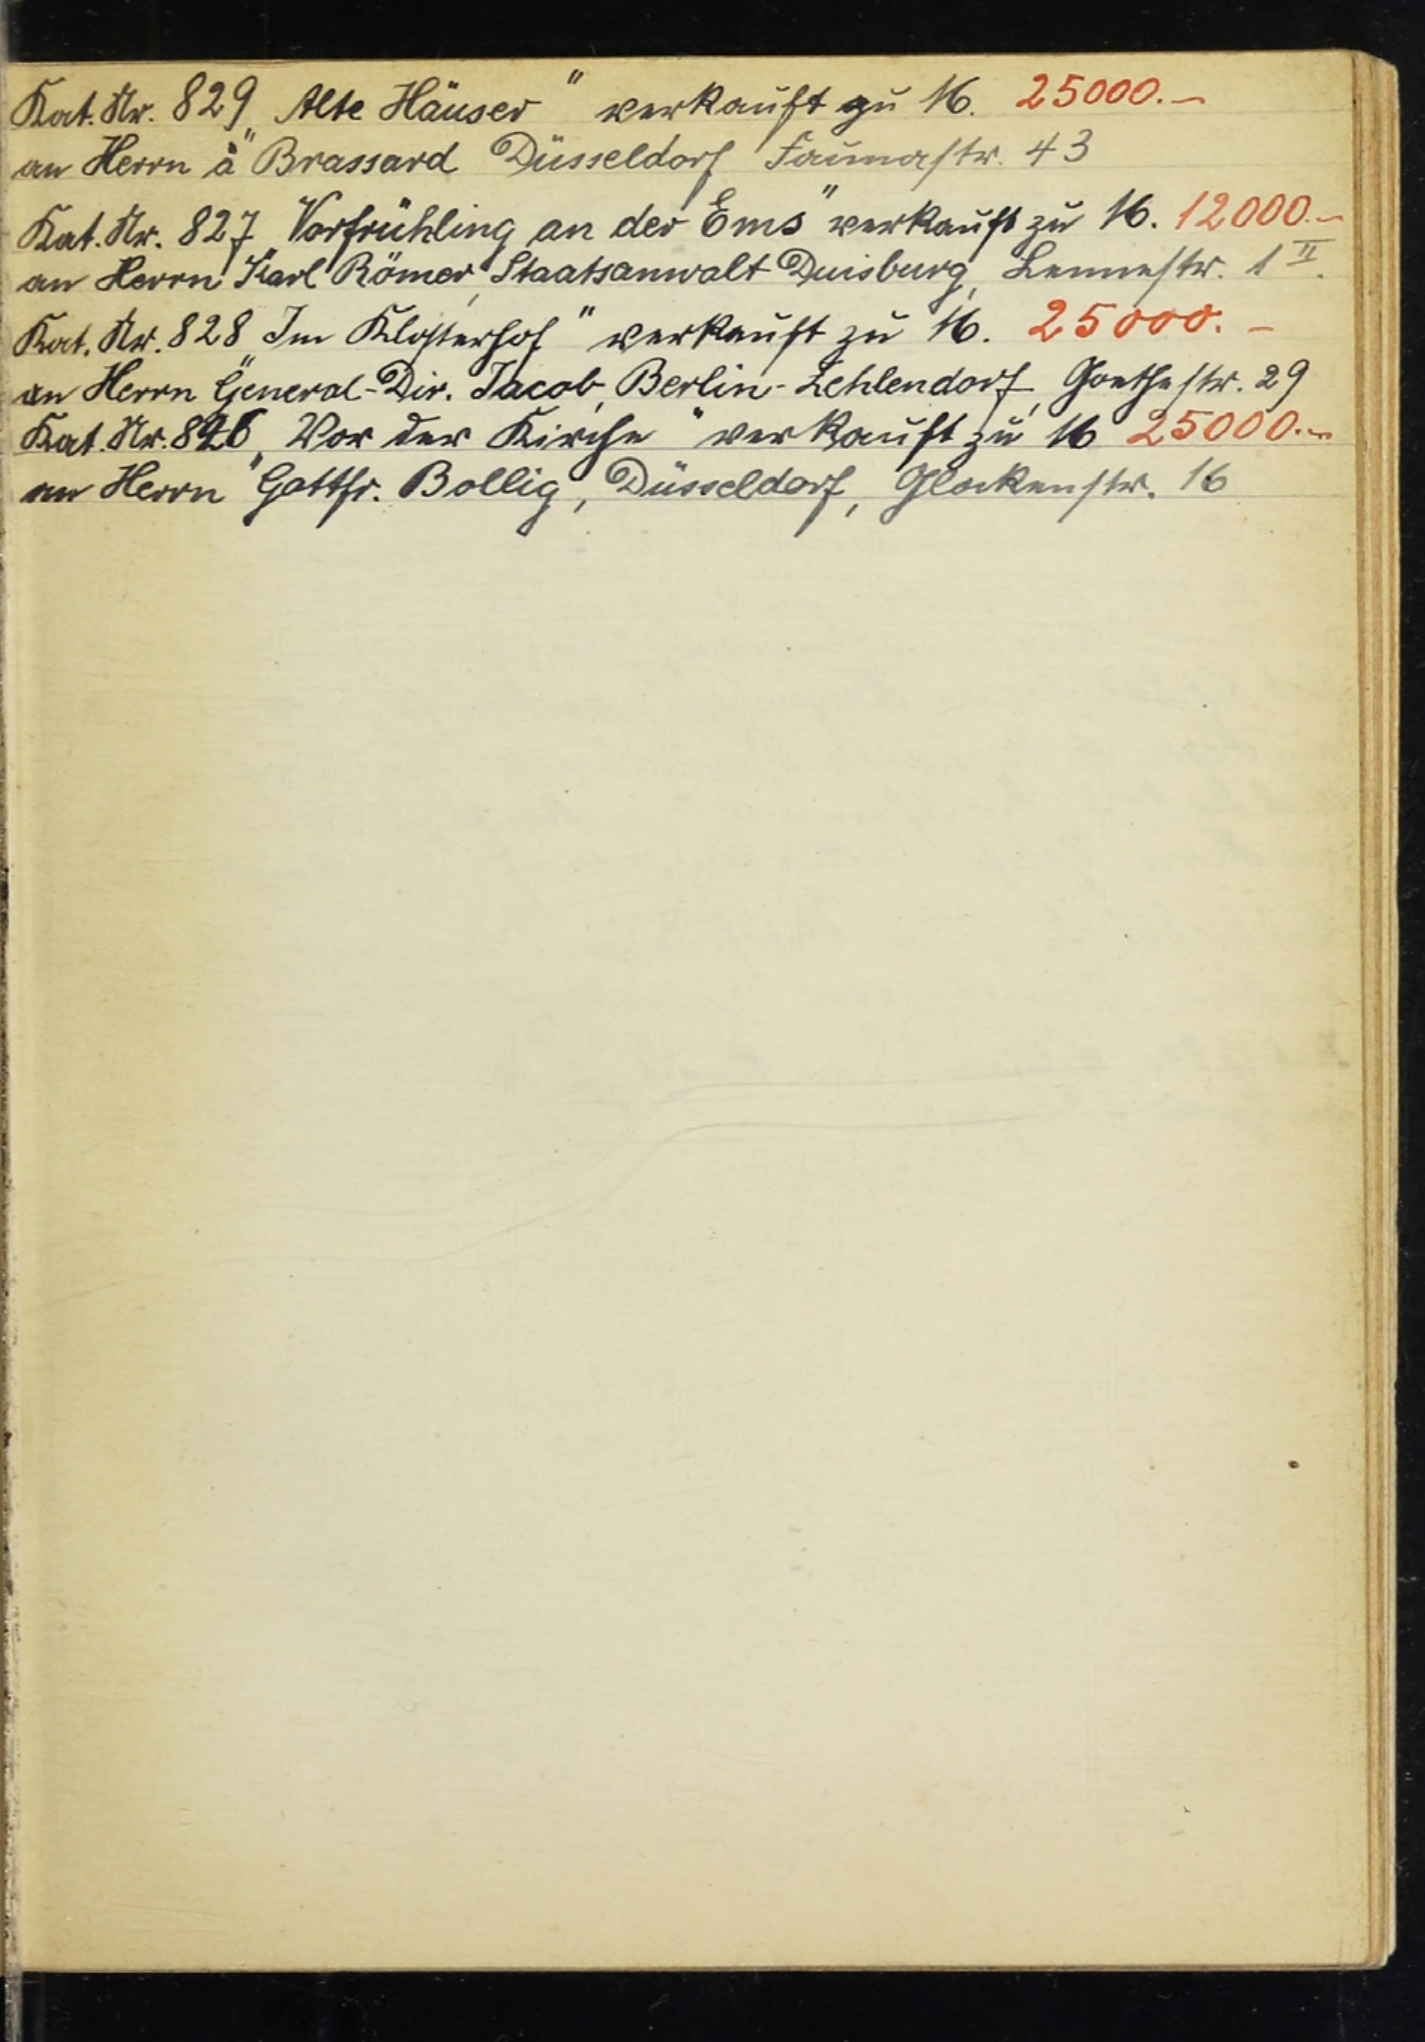 Kat. Nr. 829 „Alte Häuser" verkauft zu M. 25000.—
an Herrn à Brassard Düsseldorf Faunastr. 43
Kat. Nr. 827 „Vorfrühling an der Ems" verkauft zu M. 12000.—
an Herrn Karl Römer, Staatsanwalt Duisburg, Lennestr. 1 II.
Kat. Nr. 828 „Im Klosterhof" verkauft zu M. 25000.—
an Herrn General-Dir. Jacob, Berlin-Zehlendorf, Goethestr. 29
Kat. Nr. 826 „Vor der Kirche" verkauft zu M 25000.—
an Herrn Gottfr. Bollig, Düsseldorf, Glockenstr. 16